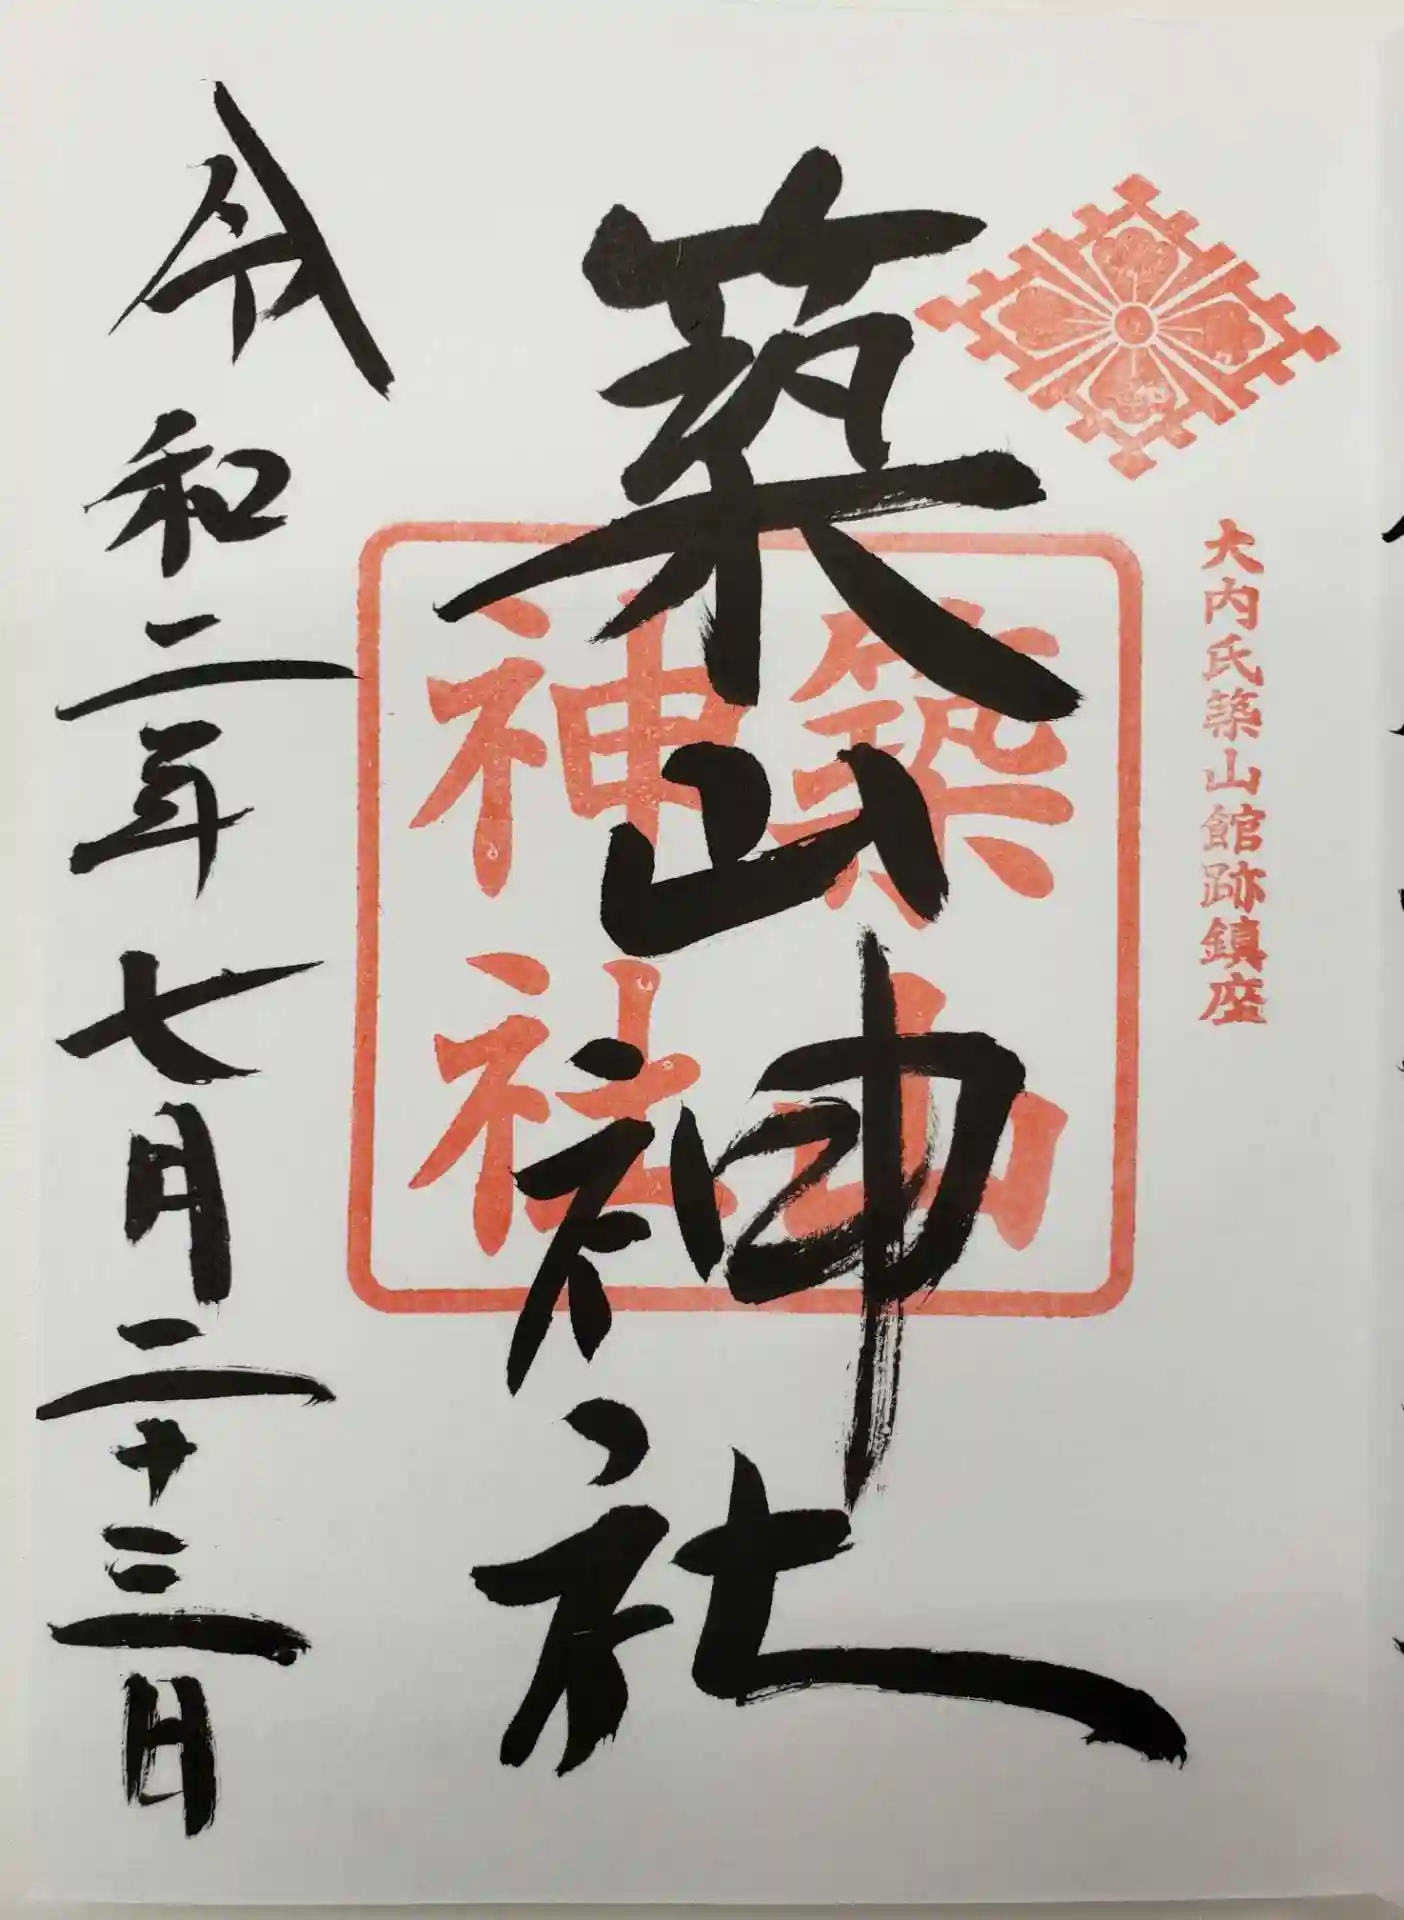 大内氏築山館跡鎮座
築山神社
築山
神社
令和二年七月二十三日